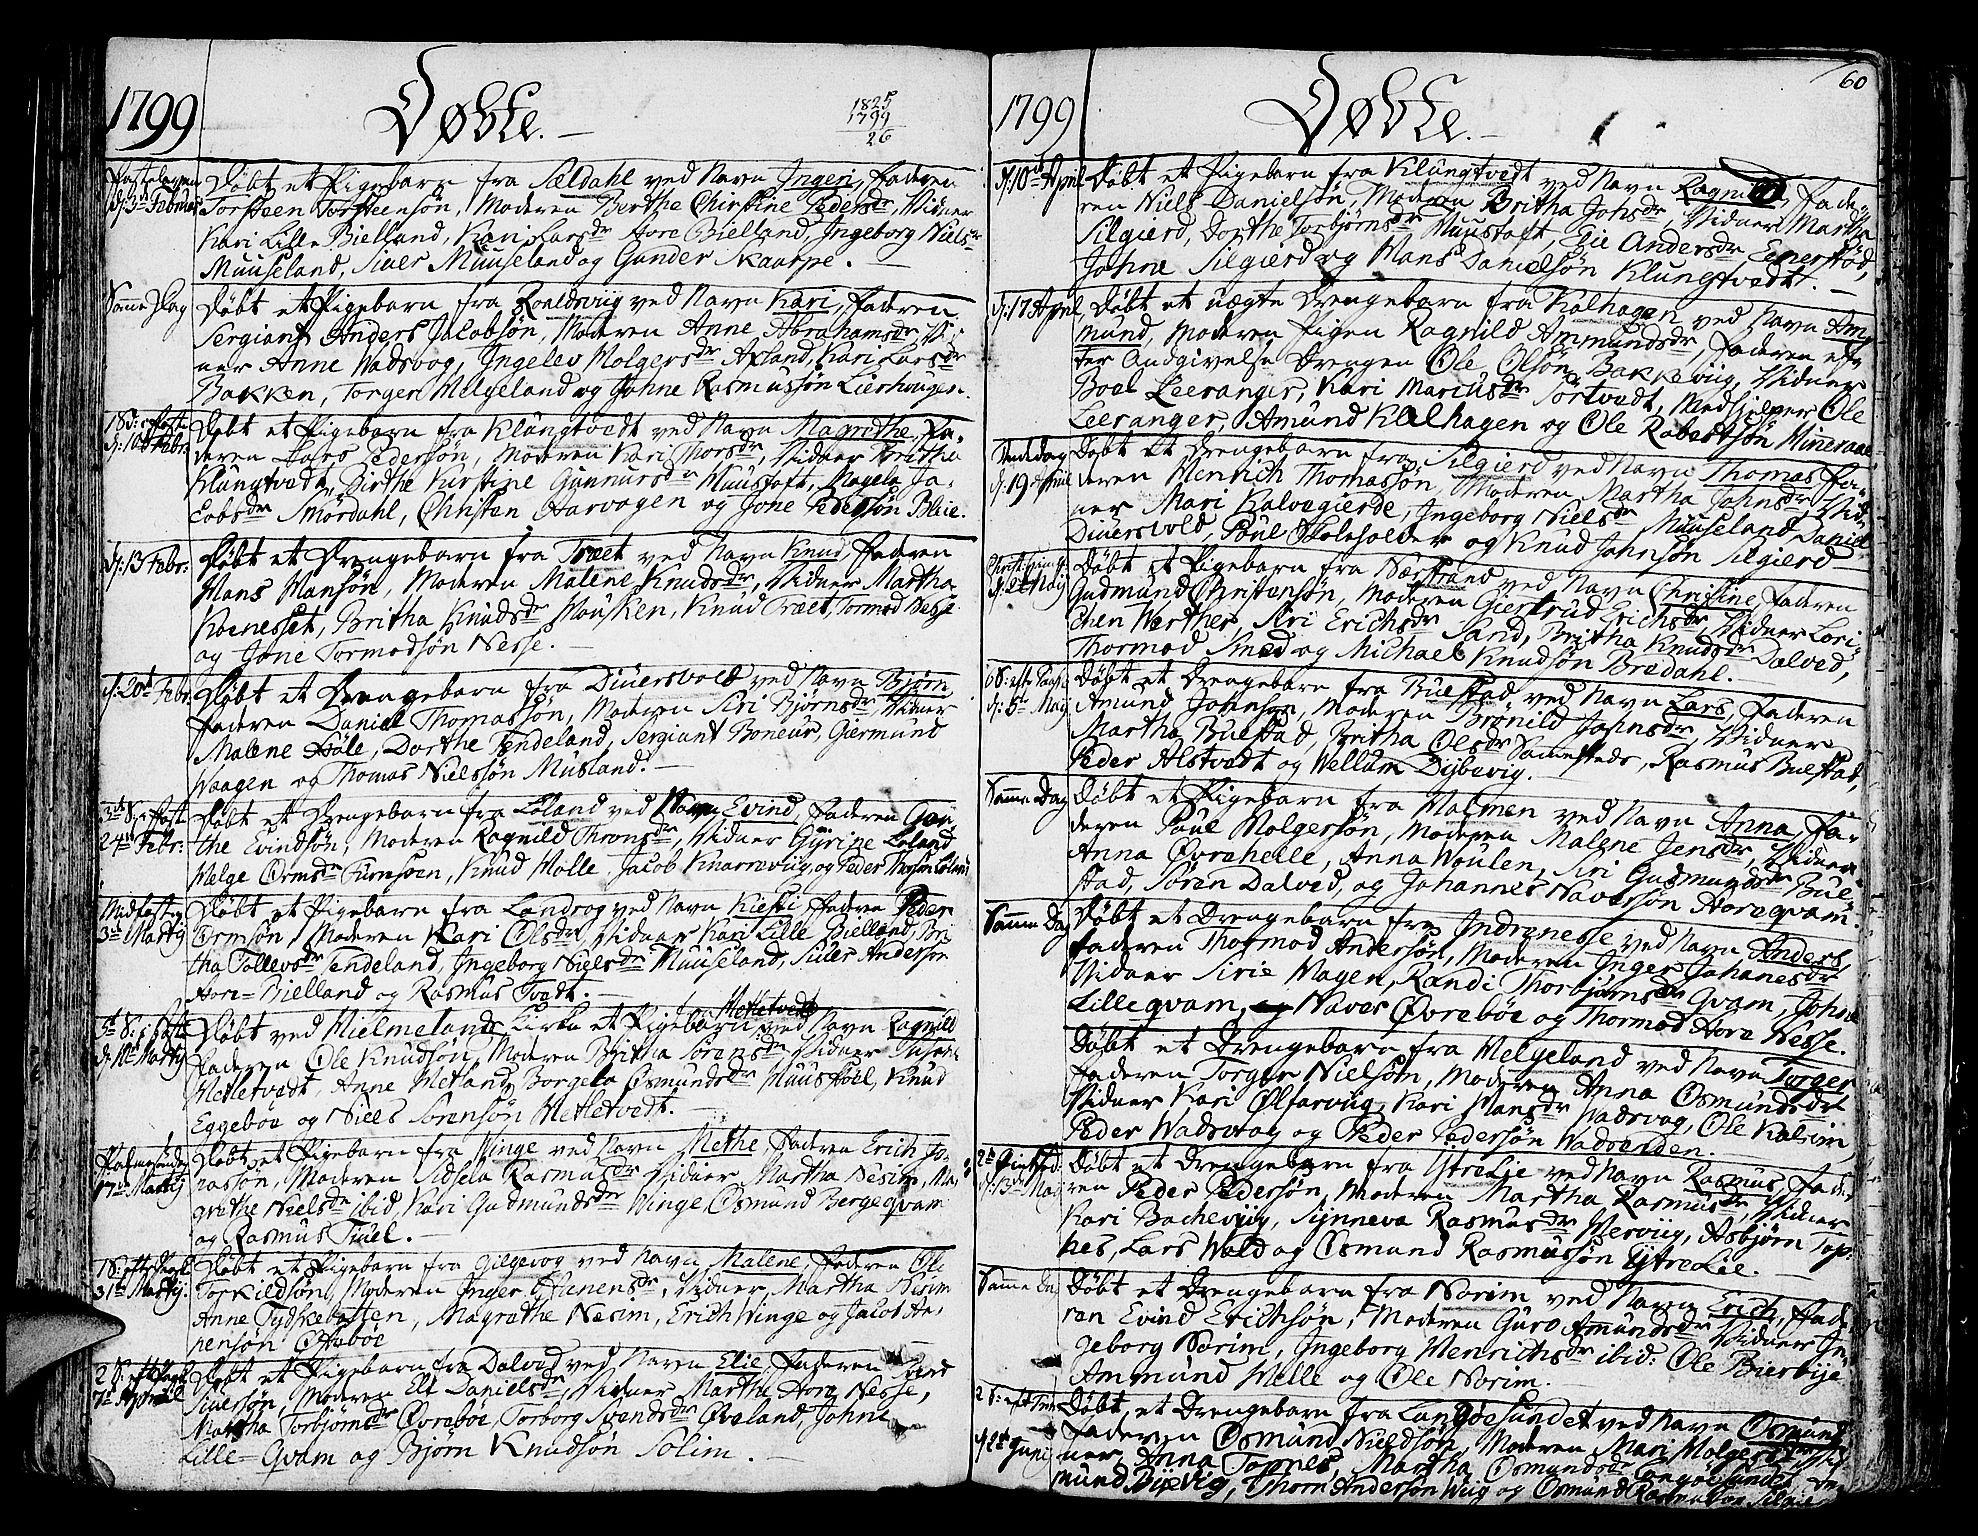 1799
Døbte.
1825
1799
26
Fastelagen d: 3de Februar
Døbt et Pigebarn fra Sældahl ved Navn Ingeri, Faderen
Torsteen Torsteensøn, Moderen Berthe Chirstine Pedersdr, Vidner
Kari Lille Bielland, Kari Larsdr Hore Bielland, Ingeborg Nielsdr
Muuseland, Siver Muuseland og Gunder Skaarpe.
Same Dag
Døbt et Pigebarn fra Roaldsviig ved Navn Kari, Faderen
Sergiant Anders Jacobsøn, Moderen Anne Abrahamsdr, Vid-
ner Anne Wadsvog, Ingelev Holgersdr Axland, Kari Larsdr
Bakken, Torger Helgeland og Johne Rasmussøn Lierhanger.
1 S: i Faste d: 10de Febr:
Døbt et Pigebarn fra Klungtvedt ved Navn Magrethe, Fa-
deren Lars Pedersøn, Moderen Kari Thorsdr, Vidner Britha
Klungtvedt, Birthe Kirstine Gunnarsdr Muustoft, Magela Ja-
cobsdr Smørdahl, Christen Aarvogen og Jone Pedersøn Bleie.
d: 13 Febr:
Døbt et Drengebarn fra Træet ved Navn Knud, Faderen
Hans Hansøn, Moderen Malene Knudsdr, Vidner Martha
Koenesset, Britha Knudsdr Housken, Knud Træet, Tormod Nesse
og Jone Tormodsøn Nesse.
d: 20de Febr:
Døbt et Drengebarn fra Diuersvold ved Navn Bjørn
Faderen Daniel Thomassøn, Moderen Siri Bjørnsdr, Vidner
Malene Høle, Dorthe Tendeland, Sergiant Boneur, Gærmund
Waagen og Thomas Nielssøn Musland.
3de S: i Faste 24de Febr:
Døbt et Drengebarn fra Løland ved Navn Evind, Faderen Gau-
the Evindsøn, Moderen Ragnild Thronsdr, Vidner Gyrine Løland
Helge Ormsdr Furesøen, Knud Molle, Jacob Knarreviig og Peder Thosøn Løland
Midfaste 3de Martij
Døbt et Pigebarn fra Landrog ved Navn Kiesti, Faderen Peder
Ormsøn, Moderen Kari Olsdr, Vidner Kari Lille Bielland, Bri-
tha Tollevsdr Tendeland, Ingeborg Nielsdr Muuseland, Siver Anderson
Hore-Bielland og Rasmus Tvedt.
d: 10de Martij
Døbt ved Hielmelands Kirke et Pigebarn Hetletvedt ved Navn Ragnild
Faderen Ole Knudsøn, Moderen Britha Sørensdr, Vidner
Hetletvedt, Anne Hetland, Borgela Osmundsdr Muusføel, Knud
Eggebøe og Niels Sørensøn Hetletvedt.
Palmesøndag 17de Martij
Døbt et Pigebarn fra Winge ved Navn Methe, Faderen Erich Jo-
nasøn, Moderen Sidsela Rasmusdr, Vidner Martha Nesim, Ma-
grethe Nielsdr ibid, Kari Gudmundsdr Winge, Osmund Bergeqvam
og Rasmus Tuel.
1 S: efter Paaske 31de Martij.
Døbt et Pigebarn fra Gilgevog ved Navn Malene, Faderen Ole
Torkildsøn, Moderen Inger Ifuersdr, Vidner Martha Nesim
Anne Tydskebotten, Magrethe Nesim, Erich Winge og Jacob Ha-
nensøn Offebøe
2 S: eft Paaske 7de Apriil
Døbt et Pigebarn fra Dalved ved Navn Elie, Faderen
Siversøn, Moderen Eli Danielsdr, Vidner Marthe Hore Nesse,
Martha Torbjørnsdr Øvrebøe, Torborg Svendsdr Øveland, Johne
Lille-Qvam og Bjørn Knudsøn Solim.
60
1799
Døbte.
d: 10de April
Døbt et Pigebarn fra Klungtvedt ved Navn Ragnild, Fade-
ren Niels Danielsøn, Moderen Britha Johsdr, Vidner Martha
Silgierd, Dorthe Torbjørnsdr Muustoft, Elie Andersdr Eenerstød,
Johne Silgierd og Hans Danielsøn Klungtvedt.
d: 17 April
Døbt et uægte Drengebarn fra Kalhagen ved Navn Am-
mund, Moderen Pigen Ragnild Ammundsdr, Faderen ef-
ter Andgivelse Drengen Ole Olsøn Bakkeviig, Vidner
Boel Leeranger, Kari Marcusdr Tortvedt, Medhielper Ole
Leeranger, Amund Kalhagen og Ole Robertsøn Mineraae
Bededag d: 19 April
Døbt et Drengebarn fra Silgierd ved Navn Thomas, Fa-
deren Henrich Thomassøn, Moderen Martha Johnsdr, Vid-
ner Mari Kalvegierde, Ingeborg Nielsdr Muuseland, Daniel
Diuersvold, Paul Skoleholder og Knud Johnsøn Silgierd
d: 2de Maij
Døbt et Pigebarn fra Nærstrand ved Navn Christine, Faderen
Gudmund Christensøn, Moderen Giertrud Erichsdr, Vidner Lori-
chen Werther, Siri Erichsdr Sand, Britha Knudsdr Dalved,
Thormod Smed og Michael Knudsøn Bredahl.
d: 5te Maij
Døbt et Drengebarn fra Buestad ved Navn Lars, Faderen
Amund Johnsøn, Moderen Brønild Johnsdr, Vidner
Martha Buestad, Britha Olsdr Sammesteds, Rasmus Buestad,
Peder Alstvedt og Wellum Dybevig.
Samme Dag
Døbt et Pigebarn fra Malmen ved Navn Anna, Fa-
deren Paul Holgersøn, Moderen Malene Jensdr, Vidner
Anna Øvrehelle, Anna Woulen, Siri Gudmundsdr Bue-
stad, Søren Dalved, og Johannes Naversøn Horeqvam.
Samme Dag
Døbt et Drengebarn fra Indrenesse ved Navn Anders,
Faderen Thormod Andersøn, Moderen Inger Johanesdr
Vidner Sirie Hagen, Randi Thorbjørnsdr Qvam, Johne
Lilleqvam, Naver Øvrebøe og Thormod Hore Nesse.
Døbt et Drengebarn fra Helgeland ved Navn Torger
Faderen Torger Nielsøn, Moderen Anna Osmundsdr
Vidner Kari Ølfarviig, Kari Hansdr Wadsvog, Ole Kalvim
Peder Wadsvog og Peder Pedersøn Wadsenden.
2de Pintsed. d: 13de Maij
Døbt et Drengebarn fra YtreLie ved Navn Rasmus, Fade-
ren Peder Pedersøn, Moderen Martha Rasmusdr, Vidner
Kari Bacheviig, Synneva Rasmusdr Werviig, Asbjørn Top-
nes, Lars Wald og Osmund Rasmussøn YtreLie.
Samme Da
Døbt et Drengebarn fra Norim ved Navn Erich, Fade-
ren Evind Erichsøn, Moderen Guro Amundsdr Vidner In-
geborg Norim, Ingeborg Henrichsdr ibid: Ole Biervije
Ammund Helle og Ole Norim.
d: 2de Junij
Døbt et Drengebarn fra Langøesundet ved Navn Osmund
Faderen Osmund Nielsøn, Moderen Mari Holgersdr
ner Anna Topnes, Martha Osmundsdr Langøesundet
mund Bijevig, Thorn Andersøn Wiig og Osmund Rasmussøn Silgier